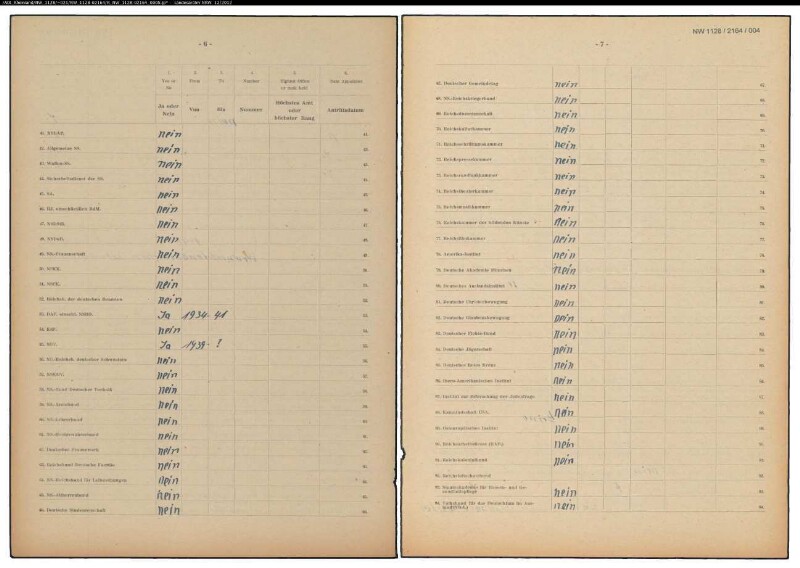 - 6 -
1.
2.
3.
4.
5.
6.
Yes or No
From
To
Number
Highest Office or rank held
Date Appointed
Ja oder Nein
Von
Bis
Nummer
Höchstes Amt oder höchster Rang
Antrittsdatum
41. NSDAP. nein 41.
42. Allgemeine SS. nein 42.
43. Waffen-SS. nein 43.
44. Sicherheitsdienst der SS. nein 44.
45. SA. nein 45.
46. HJ. einschließlich BdM. nein 46.
47. NSDStB. nein 47.
48. NSDoB. nein 48.
49. NS-Frauenschaft nein 49.
50. NSKK. nein 50.
51. NSFK. nein 51.
52. Reichsb. der deutschen Beamten nein 52.
53. DAF. einschl. KdF. Ja 1934 - 41 53.
54. KdF. nein 54.
55. NSV. Ja 1939 - ? 55.
56. NS-Reichsb. deutscher Schwestern nein 56.
57. NSKOV. nein 57.
58. NS-Bund Deutscher Technik nein 58.
59. NS-Ärztebund nein 59.
60. NS-Lehrerbund nein 60.
61. NS-Rechtswahrerbund nein 61.
62. Deutsches Frauenwerk nein 62.
63. Reichsbund Deutsche Familie nein 63.
64. NS-Reichsbund für Leibesübungen nein 64.
65. NS-Altherrenbund nein 65.
66. Deutsche Studentenschaft nein 66.
- 7 -
NW 1128 / 2164 / 004
67. Deutscher Gemeindetag nein 67.
68. NS-Reichskriegerbund nein 68.
69. Reichsdozentenschaft nein 69.
70. Reichskulturkammer nein 70.
71. Reichsschrifttumskammer nein 71.
72. Reichspressekammer nein 72.
73. Reichsrundfunkkammer nein 73.
74. Reichstheaterkammer nein 74.
75. Reichsmusikkammer nein 75.
76. Reichskammer der bildenden Künste nein 76.
77. Reichsfilmkammer nein 77.
78. Amerika-Institut nein 78.
79. Deutsche Akademie München nein 79.
80. Deutsches Auslandsinstitut nein 80.
81. Deutsche Christenbewegung nein 81.
82. Deutsche Glaubensbewegung nein 82.
83. Deutscher Fichte-Bund nein 83.
84. Deutsche Jägerschaft nein 84.
85. Deutsches Rotes Kreuz nein 85.
86. Ibero-Amerikanisches Institut nein 86.
87. Institut zur Erforschung der Judenfrage nein 87.
88. Kameradschaft USA. nein 88.
89. Osteuropäisches Institut nein 89.
90. Reichsarbeitsdienst (RAD) nein 90.
91. Reichskolonialbund nein 91.
92. Reichsluftschutzbund 92.
93. Staatsakademie für Rassen- und Gesundheitspflege nein 93.
nein